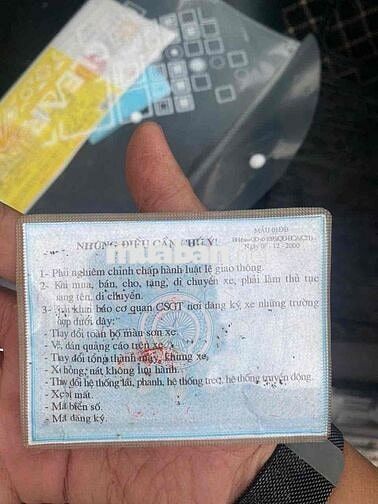 MẪU 01ĐB
Ngày 06 - 12 - 2000
NHỮNG ĐIỀU CẦN CHÚ Ý!
1- Phải nghiêm chỉnh chấp hành luật lệ giao thông.
2- Khi mua, bán, cho, tặng, di chuyển xe, phải làm thủ tục
sang tên, di chuyển.
3- Phải khai báo cơ quan CSGT nơi đăng ký, xe những trường
hợp dưới đây:
- Thay đổi toàn bộ màu sơn xe.
- Vẽ, dán quảng cáo trên xe.
- Thay đổi tổng thành máy, khung xe,
- Xe hỏng, nát không lưu hành.
- Thay đổi hệ thống lái, phanh, hệ thống treo, hệ thống truyền động.
- Xe bị mất.
- Mất biển số.
- Mất đăng ký.
muaban